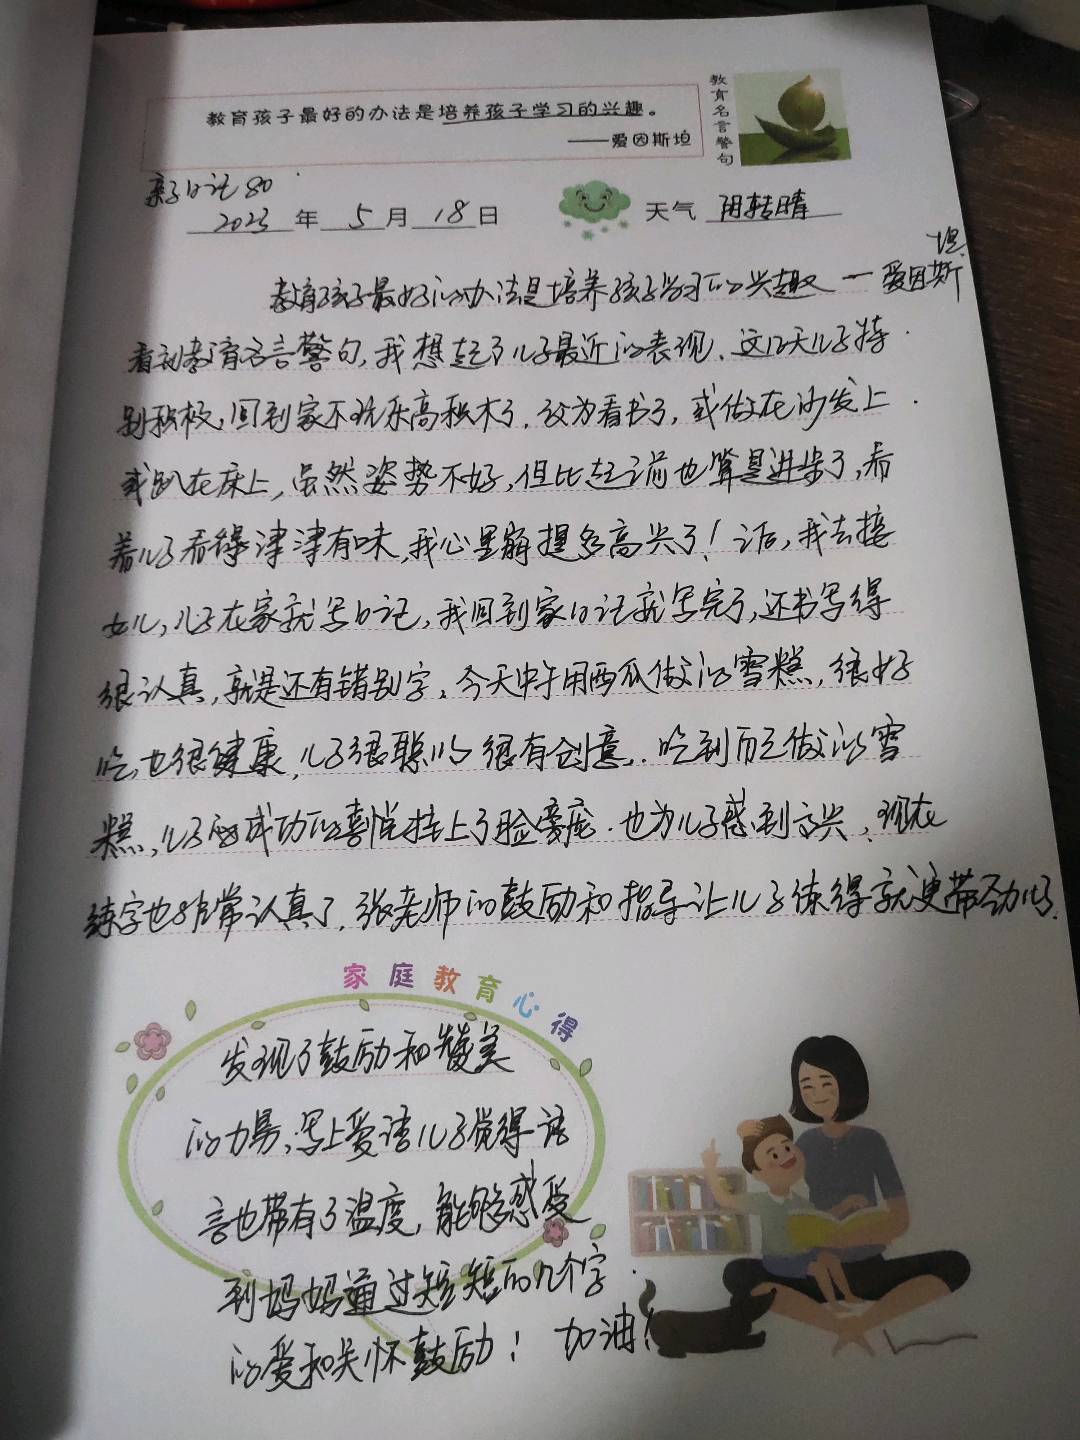 教育孩子最好的办法是培养孩子学习的兴趣。
——爱因斯坦
教育名言警句
亲子日记80
2023年5月18日
天气 阴转晴
教育孩子最好的办法是培养孩子学习的兴趣 — 爱因斯坦
看到教育名言警句,我想起了儿子最近的表现。这几天儿子特
别积极,回到家不玩乐高积木了,改为看书了,或做在沙发上
或趴在床上,虽然姿势不好,但比起之前也算是进步了,看
着儿子看得津津有味,我心里别提多高兴了!之后,我去接
女儿,儿子在家就写日记,我回到家日记就写完了,还书写得
很认真,就是还有错别字。今天中午用西瓜做的雪糕,很好
吃,也很健康,儿子很聪明 很有创意。吃到自己做的雪
糕,儿子成功的喜悦挂上了脸庞。也为儿子感到高兴,现在
练字也非常认真了,张老师的鼓励和指导让儿子练得就更带劲儿了。
家庭教育心得
发现了鼓励和赞美
的力量,写上爱语儿子觉得语
言也带有了温度,能够感受
到妈妈通过短短的几个字
的爱和关怀鼓励!加油!